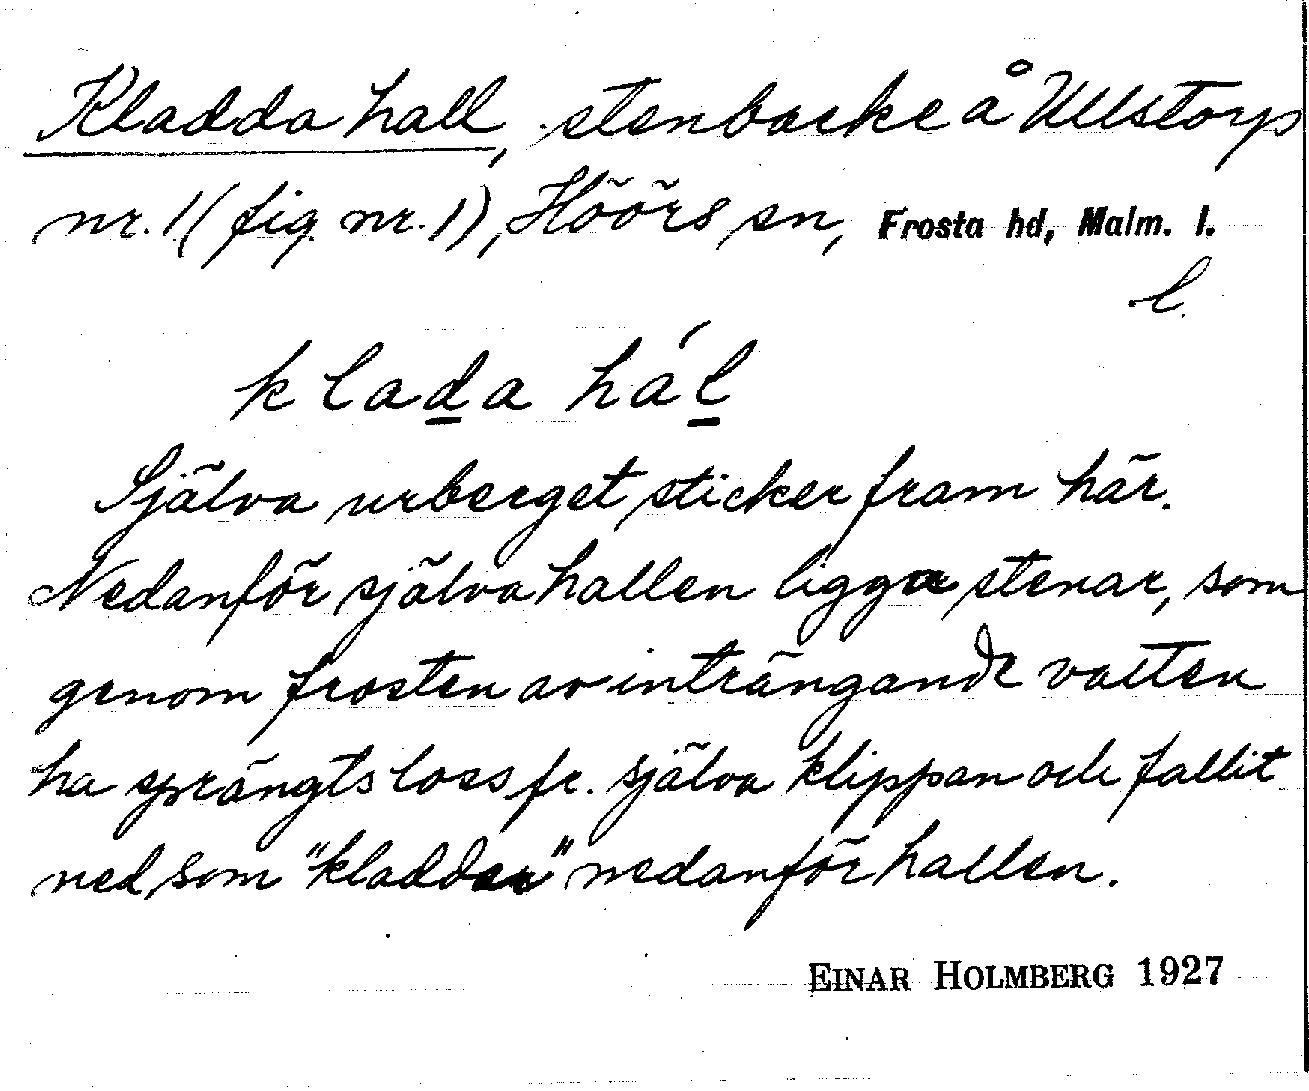 Kladda hall, stenbacke å Ullstorp
nr. 1 (fig. nr. 1), Höörs sn, Frosta hd, Malm. l.
l.
klada hál
Själva urberget sticker fram här.
Nedanför själva hallen ligga stenar, som
genom frosten av inträngande vatten
ha sprängts loss fr. själva klippan och fallit
ned som "kladdar" nedanför hallen.
EINAR HOLMBERG 1927